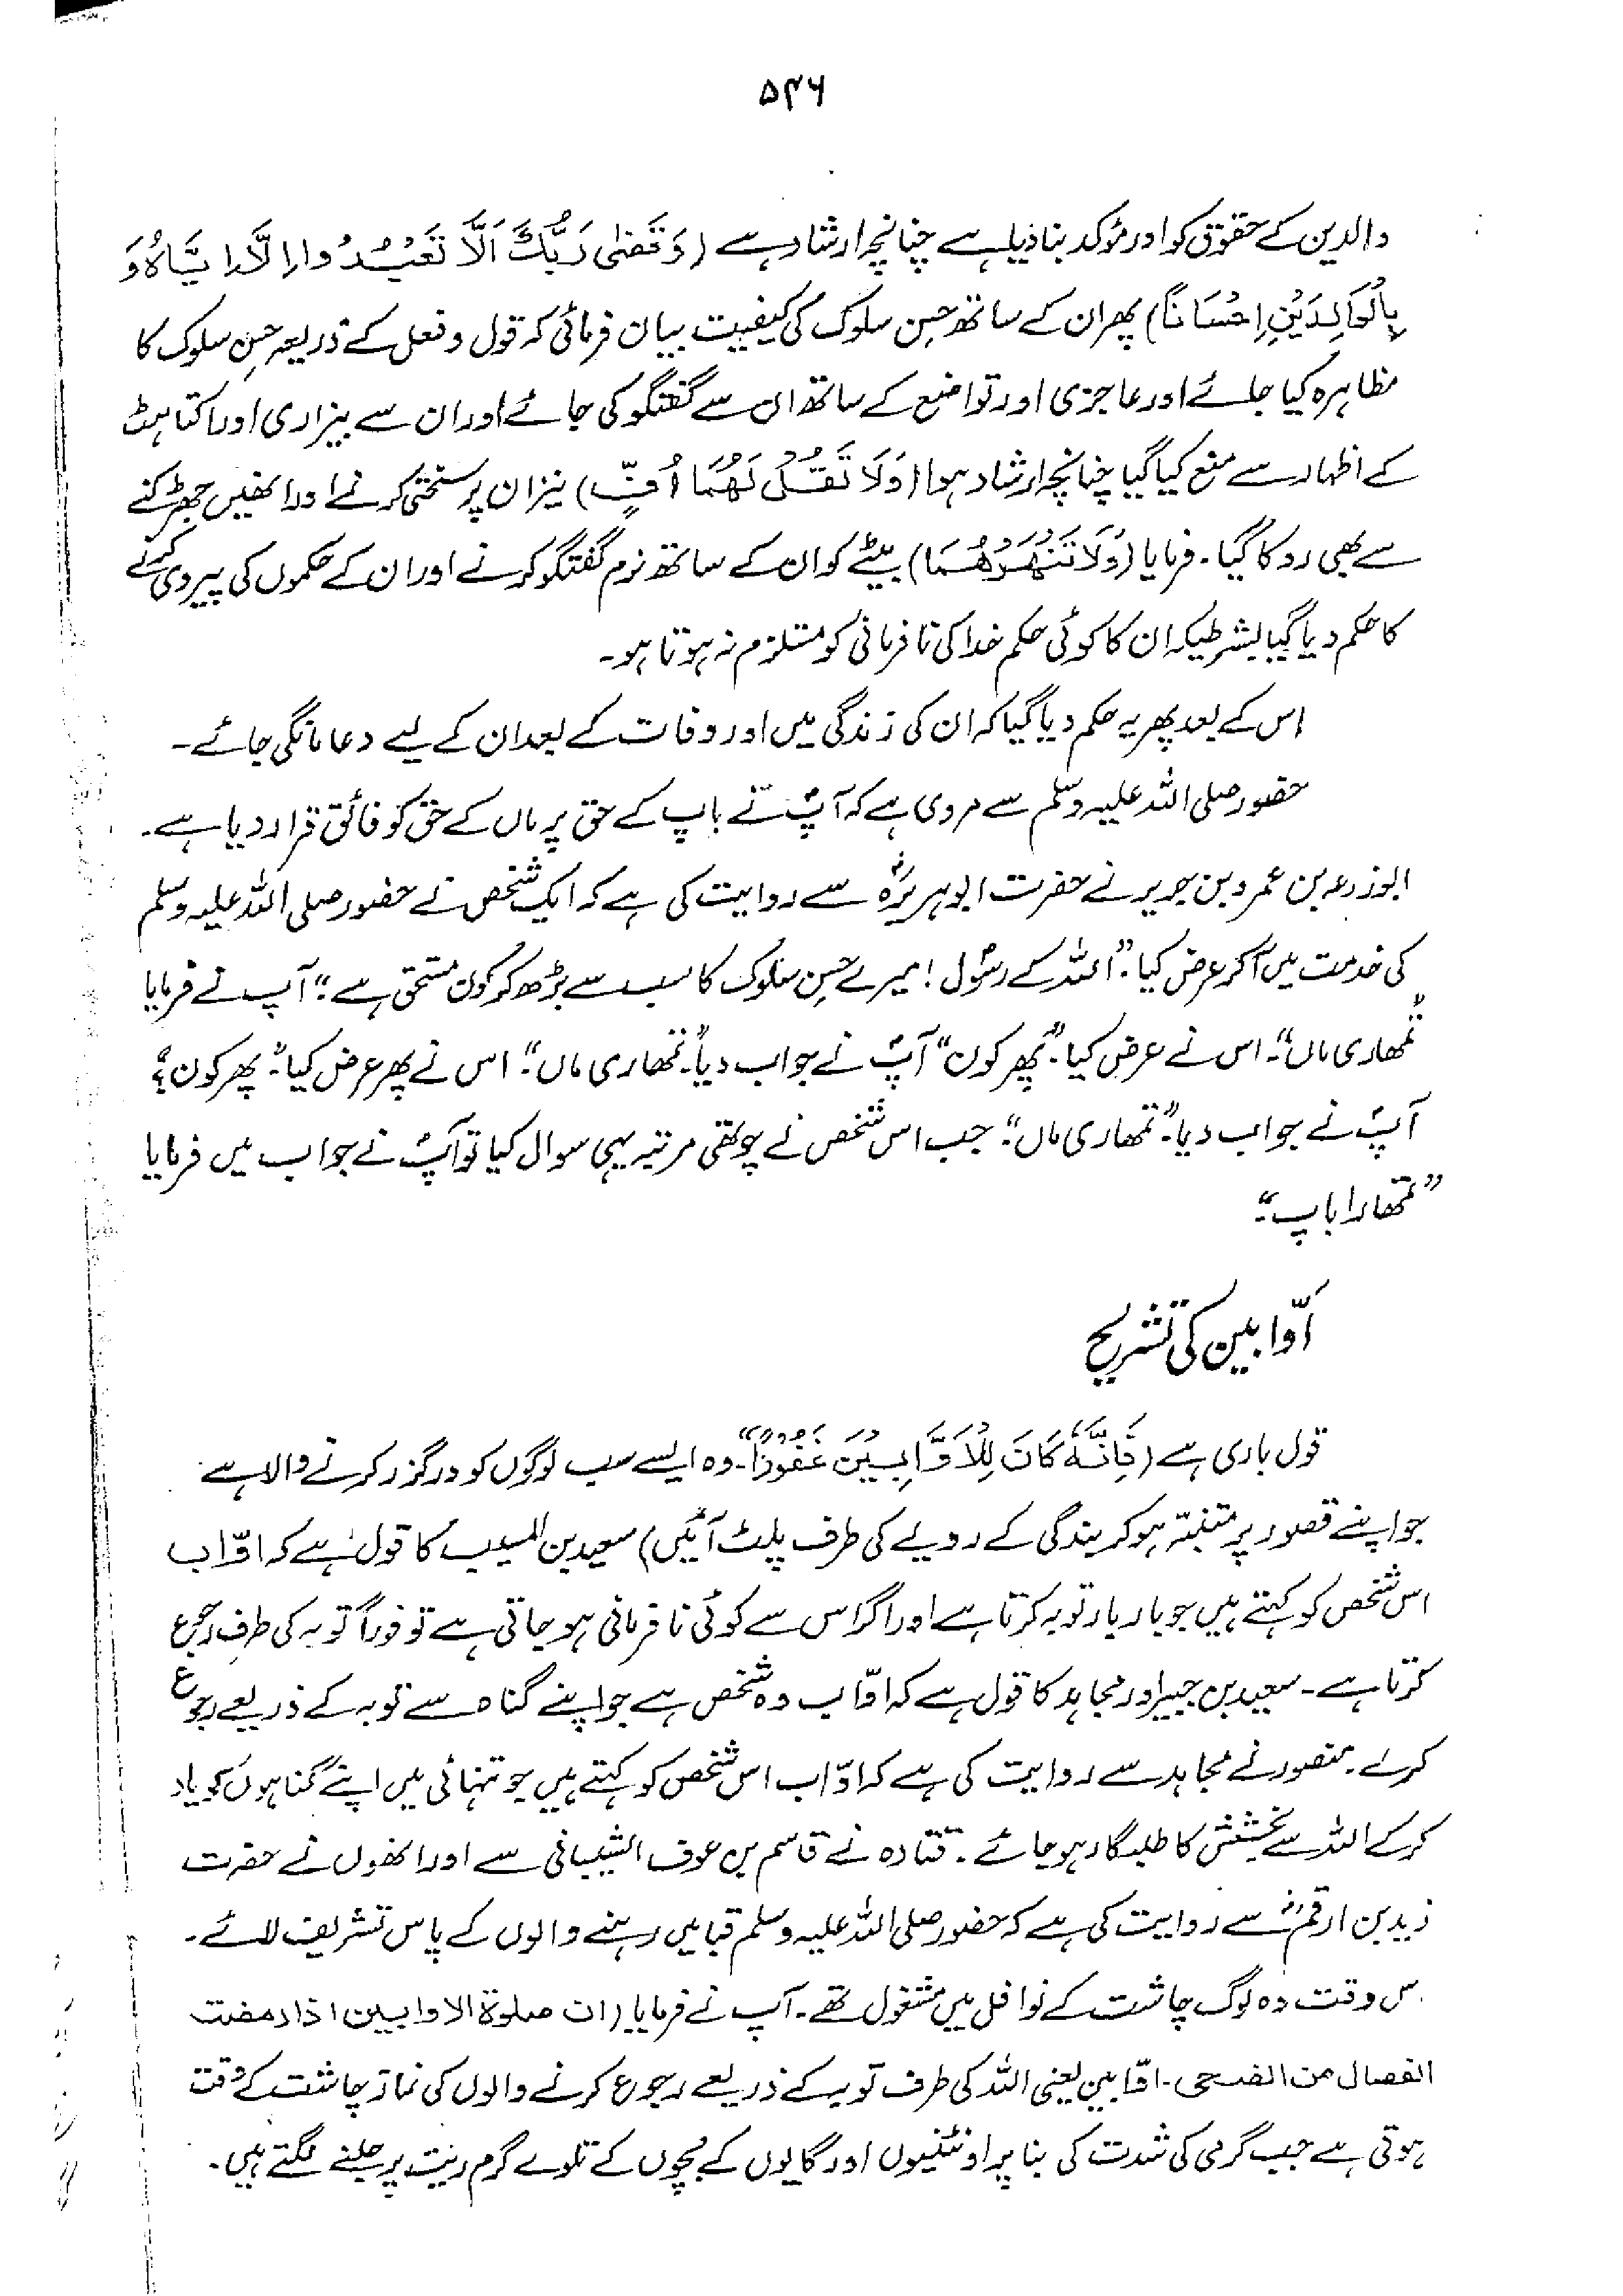 ۵۴۶
والدین کے حقوق کو اور مؤکد بنا دیا ہے چنانچہ ارشاد ہے (وَقَضٰى رَبُّكَ اَلَّا تَعْبُدُوا اِلَّا اِيَّاهُ وَ
بِالْوَالِدَيْنِ اِحْسَانًا) پھر ان کے ساتھ حسن سلوک کی کیفیت بیان فرمائی کہ قول و فعل کے ذریعہ حسن سلوک کا
مظاہرہ کیا جائے اور عاجزی اور تواضع کے ساتھ ان سے گفتگو کی جائے اور ان سے بیزاری اور اکتاہٹ
کے اظہار سے منع کیا گیا چنانچہ ارشاد ہوا (وَلَا تَقُلْ لَهُمَا اُفٍّ) نیز ان پر سختی کرنے اور انھیں جھڑکنے
سے بھی روکا گیا۔ فرمایا (وَلَا تَنْهَرْهُمَا) بیٹے کو ان کے ساتھ نرم گفتگو کرنے اور ان کے حکموں کی پیروی کرنے
کا حکم دیا گیا بشرطیکہ ان کا کوئی حکم خدا کی نافرمانی کو مستلزم نہ ہوتا ہو۔
اس کے بعد پھر یہ حکم دیا گیا کہ ان کی زندگی میں اور وفات کے بعد ان کے لیے دعا مانگی جائے۔
حضور صلی اللہ علیہ وسلم سے مروی ہے کہ آپؐ نے باپ کے حق پر ماں کے حق کو فائق قرار دیا ہے۔
ابوزرعہ بن عمرو بن جریر نے حضرت ابوہریرہؓ سے روایت کی ہے کہ ایک شخص نے حضور صلی اللہ علیہ وسلم
کی خدمت میں آ کر عرض کیا۔ ”اللہ کے رسول! میرے حسن سلوک کا سب سے بڑھ کر کون مستحق ہے“؛ آپ نے فرمایا
”تمھاری ماں“۔ اس نے عرض کیا۔ ”پھر کون“ آپؐ نے جواب دیا۔ ”تمھاری ماں“۔ اس نے پھر عرض کیا۔ ”پھر کون؟“
آپؐ نے جواب دیا۔ ”تمھاری ماں“۔ جب اس شخص نے چوتھی مرتبہ یہی سوال کیا تو آپؐ نے جواب میں فرمایا
”تمھارا باپ“۔
اَوّابین کی تشریح
قول باری ہے (فَاِنَّهٗ كَانَ لِلْاَوَّابِيْنَ غَفُوْرًا۔ وہ ایسے سب لوگوں کو درگزر کرنے والا ہے
جو اپنے قصور پر متنبہ ہو کر بندگی کے رویے کی طرف پلٹ آئیں) سعید بن المسیب کا قول ہے کہ اوّاب
اس شخص کو کہتے ہیں جو بار بار توبہ کرتا ہے اور اگر اس سے کوئی نافرمانی ہو جاتی ہے تو فوراً توبہ کی طرف رجوع
کرتا ہے۔ سعید بن جبیر اور مجاہد کا قول ہے کہ اوّاب وہ شخص ہے جو اپنے گناہ سے توبہ کے ذریعے رجوع
کرے۔ منصور نے مجاہد سے روایت کی ہے کہ اوّاب اس شخص کو کہتے ہیں جو تنہائی میں اپنے گناہوں کو یاد
کر کے اللہ سے بخشش کا طلبگار ہو جائے۔ قتادہ نے قاسم بن عوف الشیبانی سے اور انھوں نے حضرت
زید بن ارقمؓ سے روایت کی ہے کہ حضور صلی اللہ علیہ وسلم قبا میں رہنے والوں کے پاس تشریف لائے۔
س وقت وہ لوگ چاشت کے نوافل میں مشغول تھے۔ آپ نے فرمایا (ان صلوة الاوابین اذا رمضت
الفصال من الضحی۔ اوّابین یعنی اللہ کی طرف توبہ کے ذریعے رجوع کرنے والوں کی نماز چاشت کے وقت
ہوتی ہے جب گرمی کی شدت کی بنا پر اونٹنیوں اور گایوں کے بچوں کے تلوے گرم ریت پر جلنے لگتے ہیں۔